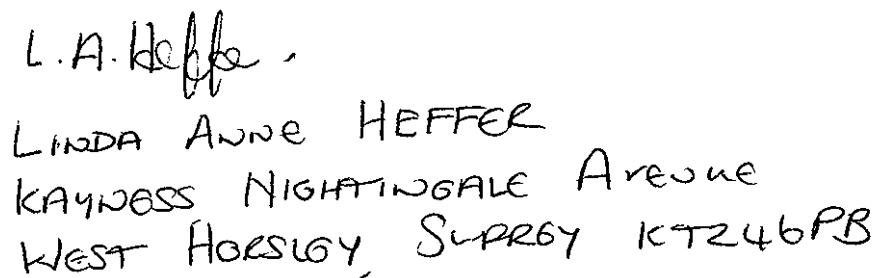 L.A. Heffer.
LINDA ANNE HEFFER
KAYNESS NIGHTINGALE Avenue
WEST HORSLEY SURREY KT24 6PB